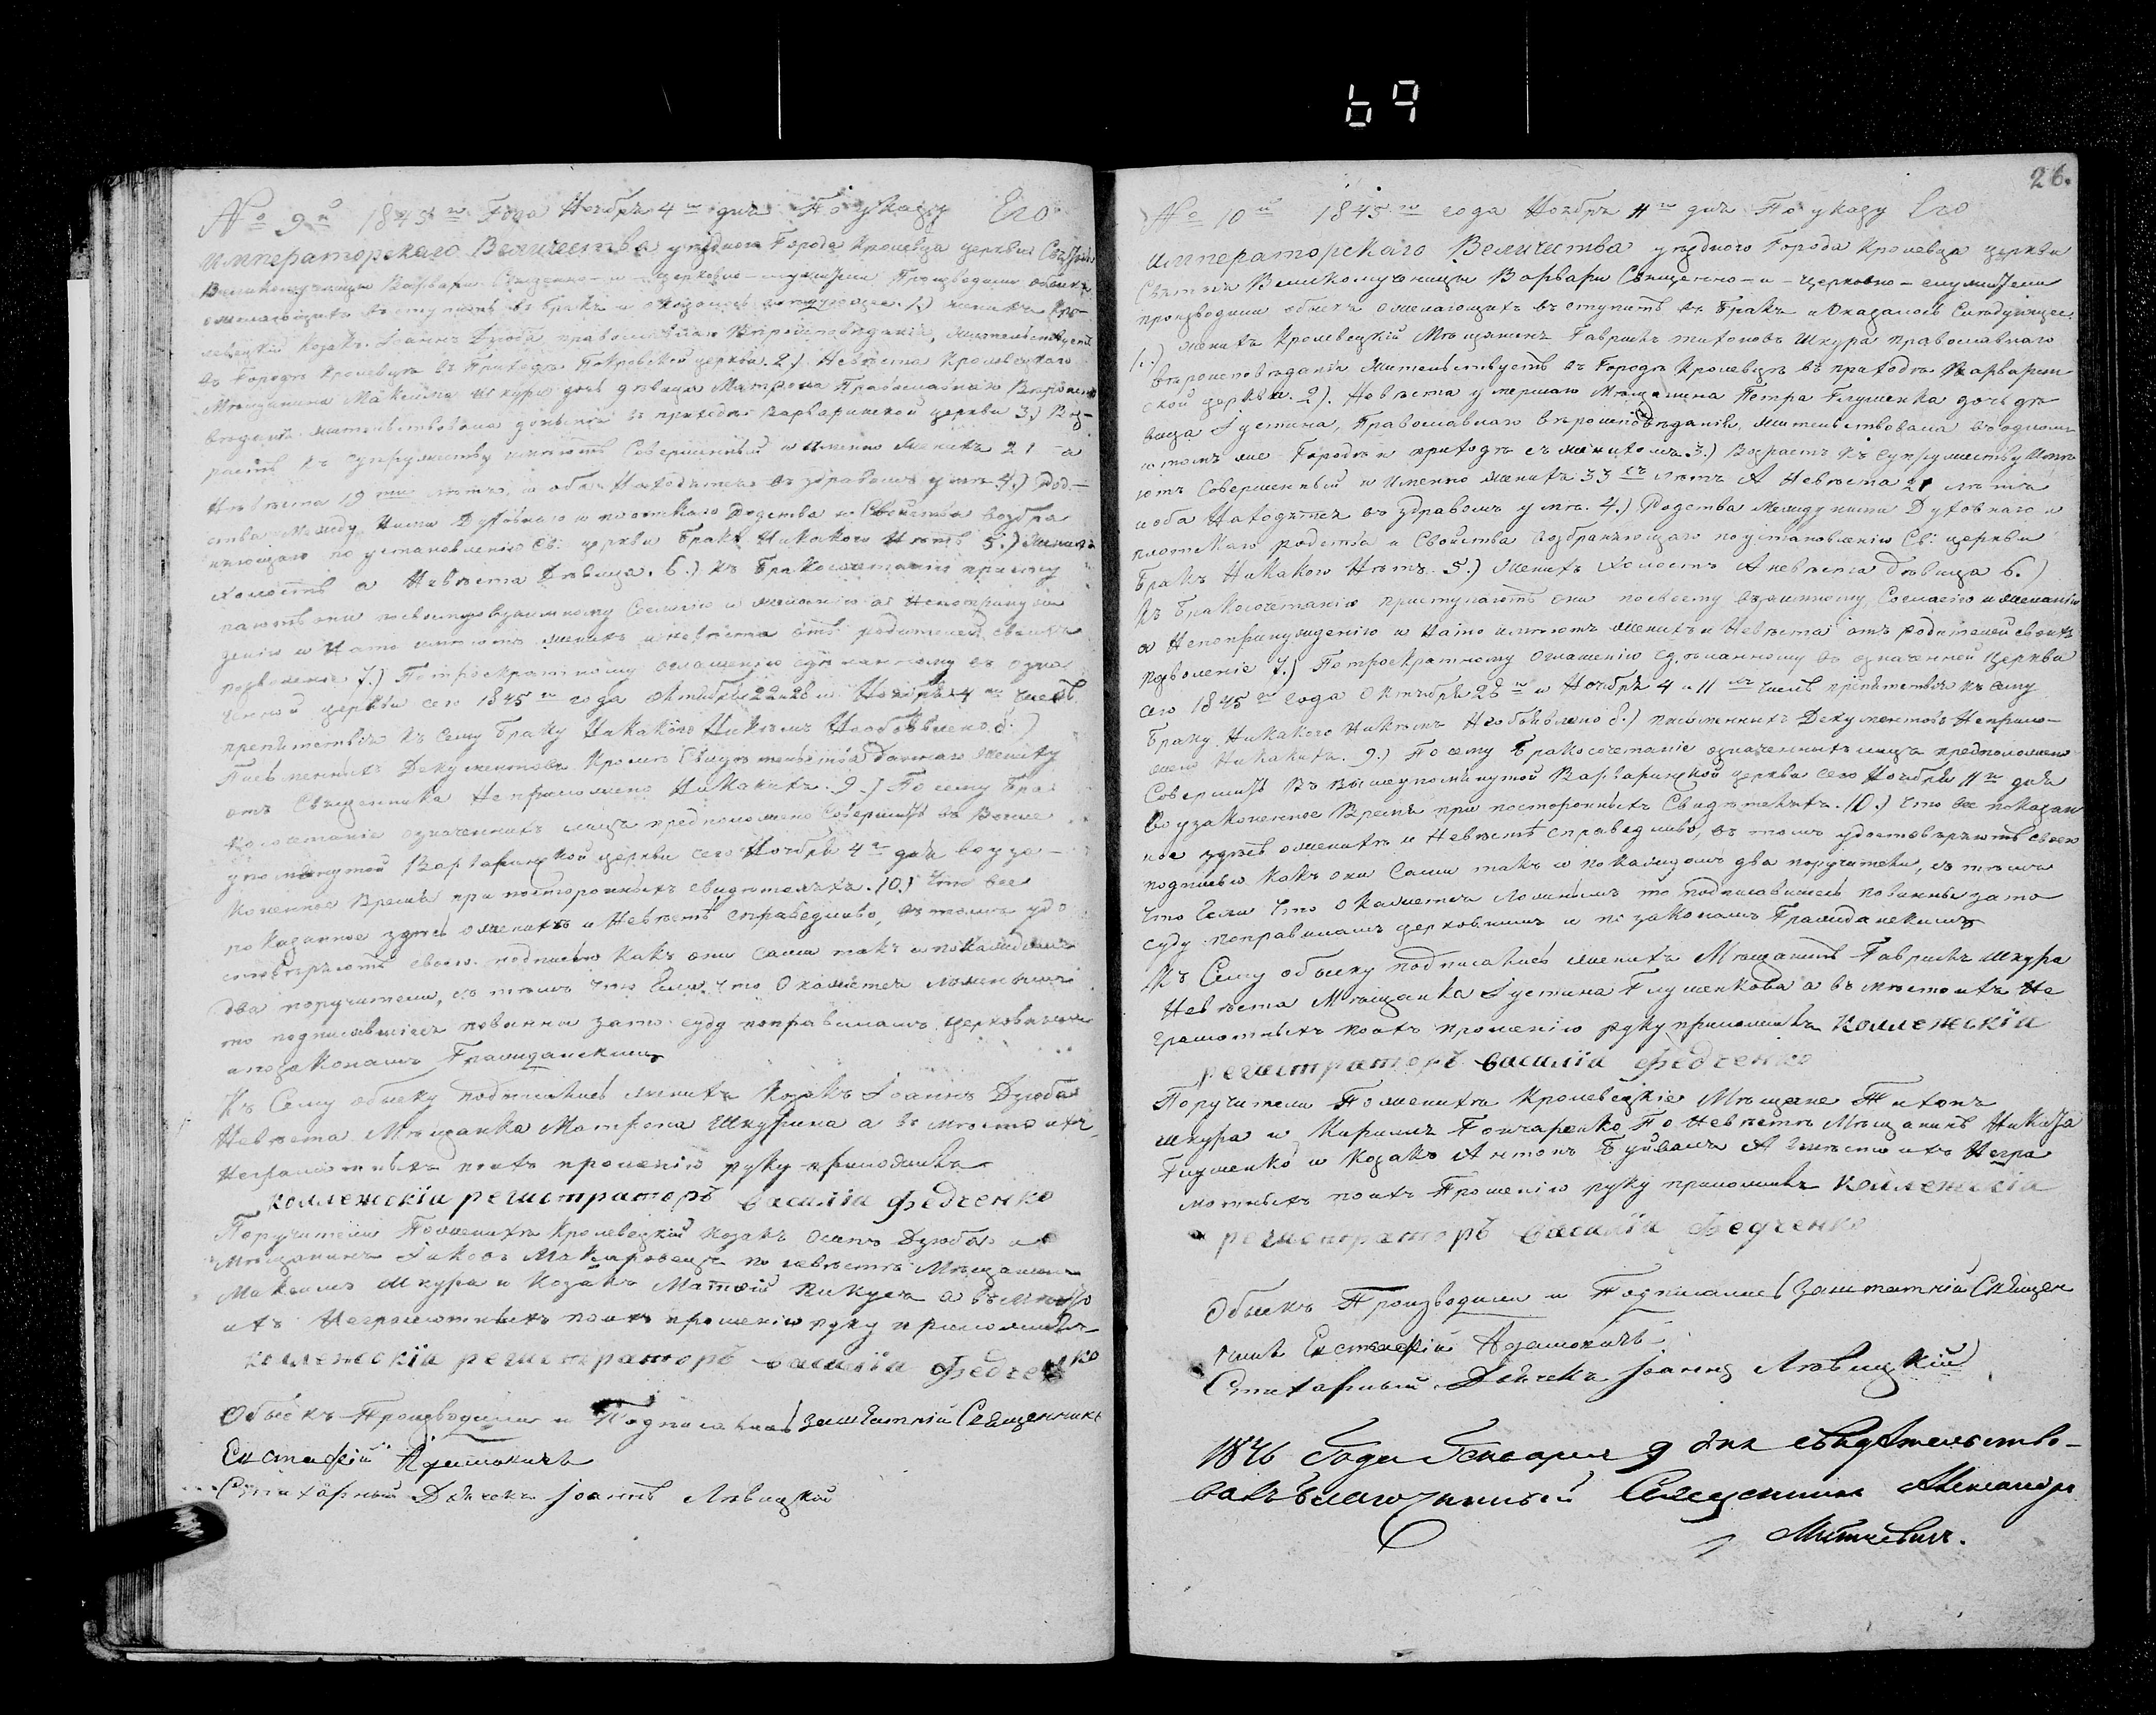 69
№ 9й 1845го Года Ноября 4го дня По указу Его
Императорского Величества уездного Города Кролевца церкви Святыя
Великомученицы Варвари Священно-и-церковно-служители Производили обыскъ
о желающихъ вступить въ бракъ и оказалось следующее. 1.) женихъ Кро-
левецкій козакъ Іоаннъ Дзюба православнаго Вероисповеданія, жительствуетъ
въ Городе Кролевце въ Приходе Покровской церкви. 2.) Невѣста Кролевецкаго
Мѣщанина Максима Шкуры дочь дѣвица Матрона Православнаго Вероиспо-
веданія жительствовала доныне въ приходе Варваринской церкви 3.) Воз-
растъ къ супружеству имѣютъ Совершенный и именно Женихъ 21 а
Невѣста 19ти лѣтъ, и оба Находятся въ здравомъ умѣ 4.) Род-
ства между Ними Духовнаго и плотскаго Родства и Свойства возбра
няющаго по установленію Св: церкви бракъ Никакого Нѣтъ 5.) Женихъ
холостъ а Невѣста Дѣвица. 6.) Къ Бракосочетанію присту
паютъ они по своему взаимному Согласію и желанію а Непопринуж
денію и На то имѣютъ женихъ и невѣста отъ родителей своихъ
позволеніе 7.) По троекратному оглашенію сдѣланному въ озна
ченной церкви сего 1845го года Октября 22 28 и Ноября 4го числъ
препятствія къ Сему браку Никакого Никѣмъ Необъявлено 8.)
Письменныхъ Документовъ Кромѣ Свидѣтельства даннаго жениху
отъ Священника Неприложено Никакихъ. 9.) По сему Бра
косочетаніе означенныхъ лицъ предположено Совершить въ Выше
упомянутой Варваринской церкви сего Ноября 4го дня во уза-
коненное Время при постороннихъ свидѣтеляхъ. 10.) Что все
показанное здѣсь о женихѣ и Невѣстѣ справедливо, въ томъ удо
стовѣряютъ своею подписью какъ они Сами такъ и по каждомъ
два поручители, съ тѣмъ что Если что Окажется ложнымъ
то подписавшіеся повинны за то суду по правиламъ церковнымъ
и по законамъ Гражданскимъ
Къ Сему обыску подписались женихъ Козакъ Іоаннъ Дзюба
Невѣста Мѣщанка Матрона Шкурина а въ мѣсто ихъ
Неграмотныхъ по ихъ прошенію руку приложилъ
коллежскій регистраторъ василій федченко
Поручители По женихѣ Кролевецкій козакъ Осипъ Дзюба и
Мѣщанинъ Яковъ по невѣстѣ Мѣщанинъ
Максимъ Шкура и Козакъ Матвѣй а въ мѣсто
ихъ Неграмотныхъ по ихъ прошенію руку приложилъ
коллежскій регистраторъ василій федченко
Обыскъ Производили и Подписались заштатній Священникъ
Евстафій Адамовичъ
Стихарный Дьячекъ Іоаннъ Левицкій
26.
№ 10й 1845го года Ноября 11го дня По указу Его
Императорскаго Величества уѣздного Города Кролевца церкви
Святыя Великомученицы Варвари Священно-и-церковно-служители
производили обыскъ о желающихъ вступить въ Бракъ и Оказалось Слѣдующее
1.) женихъ Кролевецкій Мѣщанинъ Гавріилъ Титовъ Шкура православнаго
вѣроисповѣданія жительствуетъ въ Городѣ Кролевцѣ въ приходѣ Варварин
ской церкви. 2). Невѣста умершаго Мѣщанина Петра Глушенка дочь дѣ
вица Іустина, Православнаго вѣроисповѣданія, жительствовала въ одномъ
и томъ же Городѣ и приходѣ съ женихомъ. 3.) Возрастъ къ супружеству Имѣ
ютъ Совершенный и Именно женихъ 33хъ лѣтъ А Невѣста 21 лѣта
и оба Находятся въ здравомъ умѣ. 4.) Родства Между ними Духовнаго и
плотскаго родства и Свойства возбраняющаго по установленію Св: церкви
бракъ Никакого Нѣтъ. 5.) Женихъ Холостъ А невѣста дѣвица 6.)
Къ бракосочетанію приступаютъ они по своему взаимному Согласію и желанію
а Непопринужденію и На то имѣютъ женихъ и Невѣста отъ родителей своихъ
позволеніе 7.) По троекратному оглашенію сдѣланному въ означенной церкви
сего 1845го года Октября 28го и Ноября 4 и 11го числъ препятствія къ Сему
браку Никакого Никѣмъ Необъявлено 8.) письменныхъ Документовъ Неприло-
жено Никакихъ. 9.) По сему Бракосочетаніе означенныхъ лицъ предположено
Совершить Въ Вышеупомянутой Варваринской церкви сего Ноября 11го дня
во узаконенное Время при постороннихъ Свидѣтеляхъ. 10.) Что все показан
ное здѣсь о женихѣ и Невѣстѣ справедливо, въ томъ удостовѣряютъ своею
подписью какъ они Сами такъ и по каждомъ два поручители, съ тѣмъ
что Если что Окажется Ложнымъ то подписавшіеся повинны за то
суду по правиламъ церковнымъ и по законамъ Гражданскимъ
Къ Сему обыску подписались женихъ Мѣщанинъ Гавріилъ Шкура
Невѣста Мѣщанка Іустина Глушенкова а въ мѣсто ихъ Не
грамотныхъ по ихъ прошенію руку приложилъ коллежскій
регистраторъ василій федченко
Поручители По женихѣ Кролевецкіе Мѣщане Титъ
Шкура и Кирилъ Гончаренко По Невѣстѣ Мѣщанинъ Никита
Глушенко и Козакъ Антонъ А вмѣсто ихъ Негра
мотныхъ по ихъ Прошенію руку приложилъ коллежскій
регистраторъ василій федченко
Обыскъ Производили и Подписались заштатній Священ
никъ Евстафій Адамовичъ
Стихарный Дьячекъ Іоаннъ Левицкій
1846 Года Генваря 9 дня свидѣтельство-
валъ благочинный Священникъ Александръ
Миткевичъ.